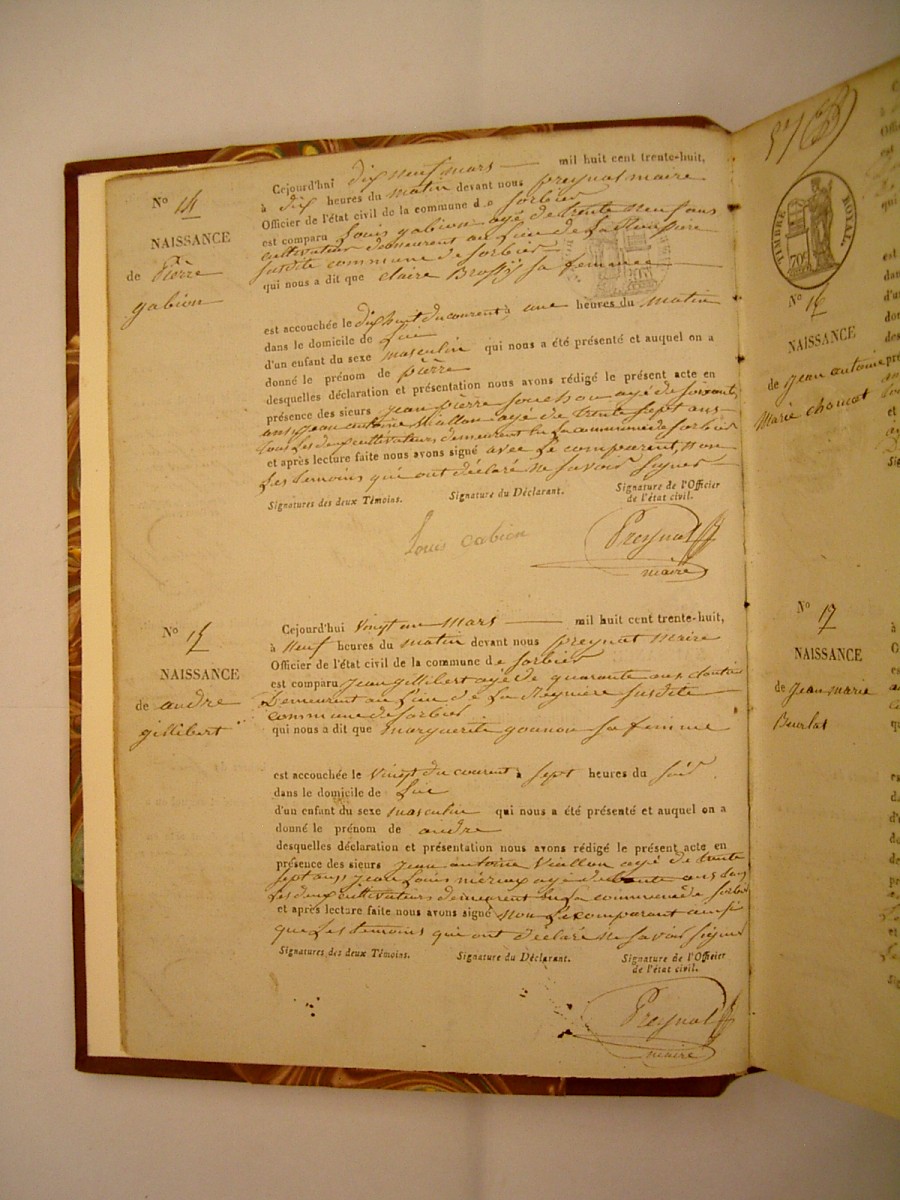 N° 14
NAISSANCE
de Pièrre
gabion
Cejourd'hui dix neuf mars mil huit cent trente-huit,
à dix heures du matin devant nous preynat maire
Officier de l'état civil de la commune de Sorbier
est comparu Louis gabion agé de trente neuf ans
cultivateur demeurent au Lieu de La
susdite commune de Sorbier
qui nous a dit que claire Brossy sa femme
est accouchée le dix huit du courent à une heures du matin
dans le domicile de Lui
d'un enfant du sexe masculin qui nous a été présenté et auquel on a
donné le prénom de pièrre
desquelles déclaration et présentation nous avons rédigé le présent acte en
présence des sieurs jean pièrre souchon agé de soixante
ans, jean antoine Viallon agé de trente sept ans
tous Les deux cultivateurs, demeurent en La commune de Sorbier
et après lecture faite nous avons signé avec Le comparent, non
Les temoins qui ont déclaré ne savoir signer
Signatures des deux Témoins. Signature du Déclarant. Signature de l'Officier
de l'état civil.
Louis Gabion
Preynat
maire
N° 15
NAISSANCE
de andre
gillibert
Cejourd'hui vingt un Mars mil huit cent trente-huit,
à Neuf heures du matin devant nous preynat Maire
Officier de l'état civil de la commune de Sorbier
est comparu jean gillibert agé de quarante ans
Demeurent au Lieu de La Reynière susdite
commune de Sorbier
qui nous a dit que marguerite gounon sa femme
est accouchée le vingt du courent à sept heures du soir
dans le domicile de Lui
d'un enfant du sexe masculin qui nous a été présenté et auquel on a
donné le prénom de andre
desquelles déclaration et présentation nous avons rédigé le présent acte en
présence des sieurs jean antoine Viallon agé de trente
sept ans, jean Louis agé de trente ans tous
Les deux cultivateurs demeurent en La commune de Sorbier
et après lecture faite nous avons signé non Le comparant ainsi
que Les temoins qui ont déclaré ne savoir signer
Signatures des deux Témoins. Signature du Déclarant. Signature de l'Officier
de l'état civil.
Preynat
maire
TIMBRE ROYAL.
70c
N° 16
NAISSANCE
de jean antoine
Marie chomat
N° 17
NAISSANCE
de jean marie
Beurlat